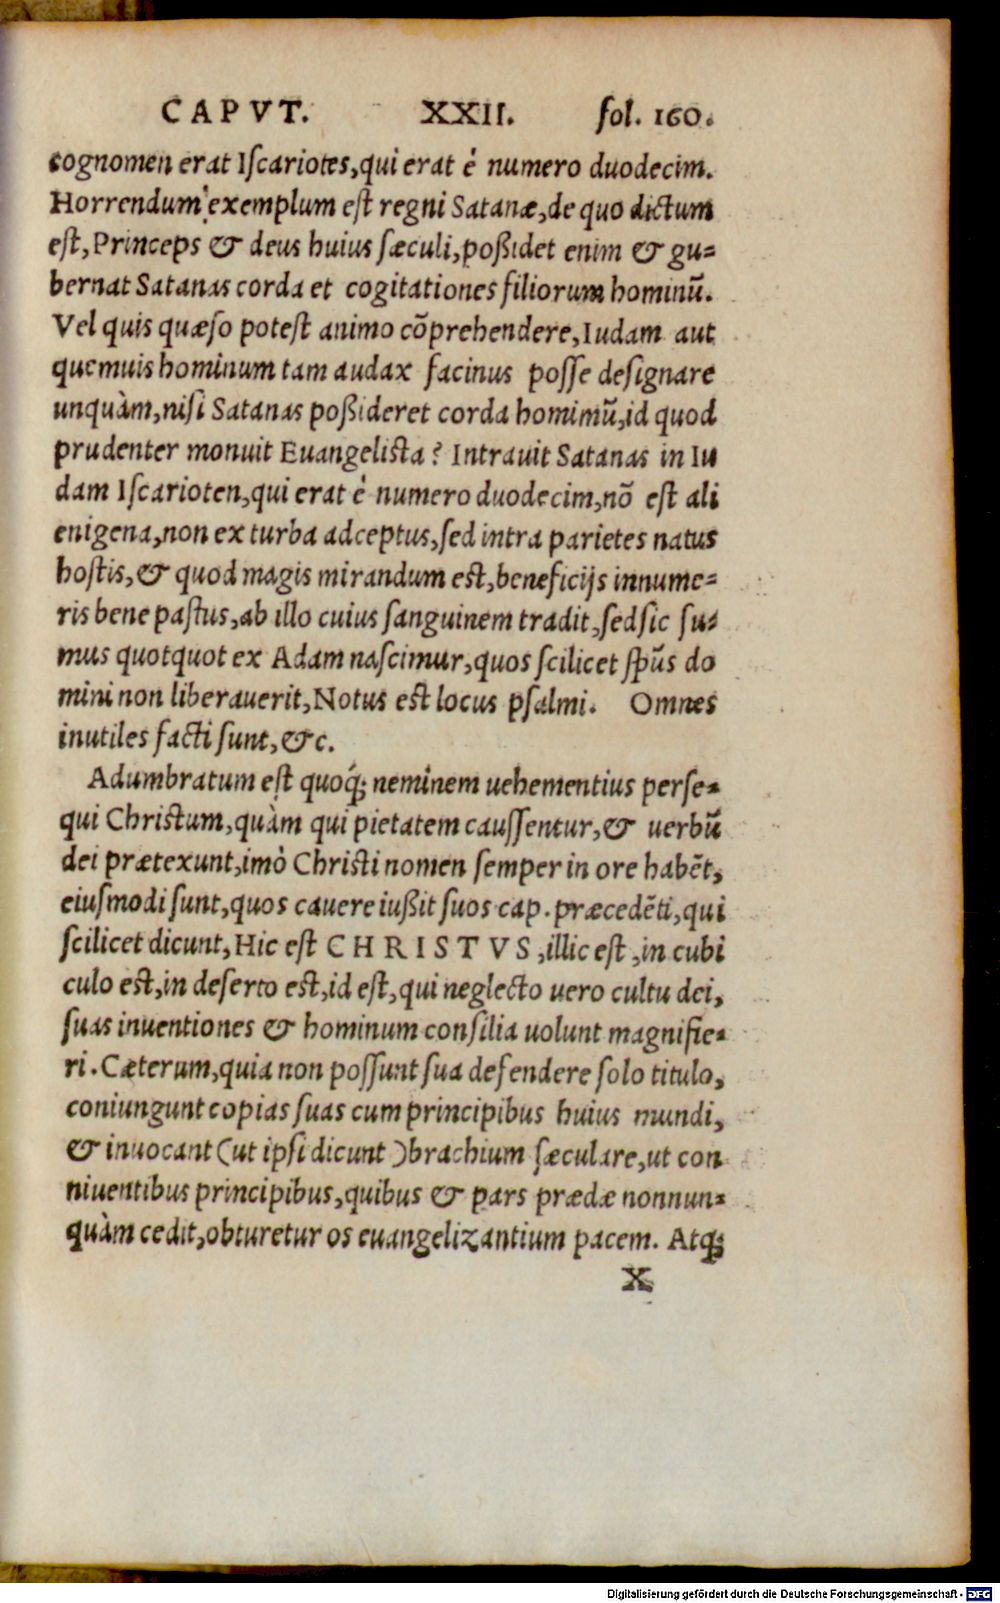 CAPVT. XXII. fol. 160.
cognomen erat Iſcariotes,qui erat è numero duodecim.
Horrendum exemplum eſt regni Satanæ,de quo dictum
eſt,Princeps & deus huius ſæculi,poßidet enim & gu=
bernat Satanas corda et cogitationes filiorum hominū.
Vel quis quæſo poteſt animo cōprehendere,Iudam aut
quemuis hominum tam audax facinus poſſe deſignare
unquàm,niſi Satanas poßideret corda homimū,id quod
prudenter monuit Euangeliſta? Intrauit Satanas in Iu
dam Iſcarioten,qui erat è numero duodecim,nō eſt ali
enigena,non ex turba adceptus,ſed intra parietes natus
hoſtis,& quod magis mirandum eſt,beneficijs innume=
ris bene paſtus,ab illo cuius ſanguinem tradit,ſed ſic ſu=
mus quotquot ex Adam naſcimur,quos ſcilicet ſpūs do
mini non liberauerit,Notus eſt locus pſalmi. Omnes
inutiles facti ſunt,&c.
Adumbratum eſt quoq́; neminem uehementius perſe=
qui Chriſtum,quàm qui pietatem cauſſentur,& uerbū
dei prætexunt,imò Chriſti nomen ſemper in ore habēt,
eiuſmodi ſunt,quos cauere iußit ſuos cap. præcedēti,qui
ſcilicet dicunt,Hic eſt CHRISTVS,illic eſt,in cubi
culo eſt,in deſerto eſt,id eſt,qui neglecto uero cultu dei,
ſuas inuentiones & hominum conſilia uolunt magnifie=
ri. Cæterum,quia non poſſunt ſua defendere ſolo titulo,
coniungunt copias ſuas cum principibus huius mundi,
& inuocant (ut ipſi dicunt )brachium ſæculare,ut con
niuentibus principibus,quibus & pars prædæ nonnun=
quàm cedit,obturetur os euangelizantium pacem. Atq;
X
Digitalisierung gefördert durch die Deutsche Forschungsgemeinschaft - DFG